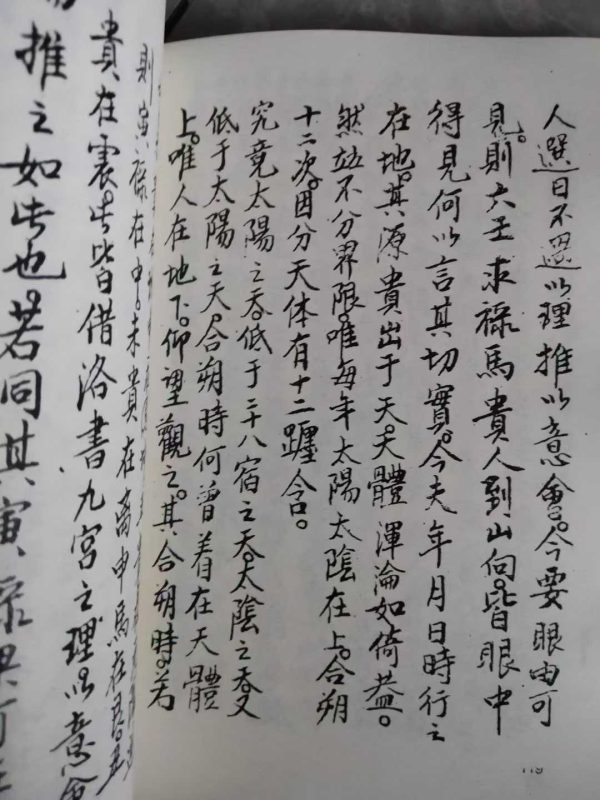 人選日不過以理推以意會。今要眼由可
見。則六壬求祿馬貴人到山向。皆眼中
得見何以言其切實。今夫年月日時行之
在地。其源貴出于天。天體渾淪如倚蓋。
然並不分界限。唯每年太陽太陰在上。合朔
十二次。因分天体有十二躔舍。
究竟太陽之天。低于二十八宿之天。太陰之天又
低于太陽之天。合朔時何曾着在天體
上。唯人在地下。仰望觀之。其合朔時。若
則寅祿在中。未貴在离申馬在
貴在震。此皆借洛書九宮之理。以意會
推之如此也。若同其寅祿